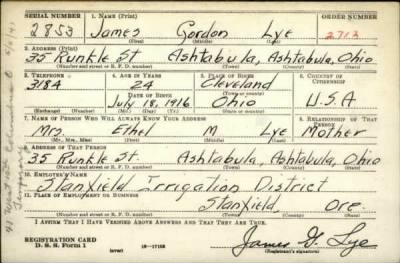 SERIAL NUMBER 1. NAME (Print) ORDER NUMBER
2853 James Gordon Lye 2713
(First) (Middle) (Last)
2. ADDRESS (Print)
35 Runkle St. Ashtabula, Ashtabula, Ohio
(Number and street or R. F. D. number) (Town) (County) (State)
3. TELEPHONE 4. AGE IN YEARS 5. PLACE OF BIRTH 6. COUNTRY OF CITIZENSHIP
3184 24 Cleveland
DATE OF BIRTH (Town or county)
July 18, 1916 Ohio U.S.A
(Exchange) (Number) (Mo.) (Day) (Yr.) (State or country)
7. NAME OF PERSON WHO WILL ALWAYS KNOW YOUR ADDRESS 8. RELATIONSHIP OF THAT PERSON
Mrs. Ethel M Lye Mother
(Mr., Mrs., Miss) (First) (Middle) (Last)
9. ADDRESS OF THAT PERSON
35 Runkle St. Ashtabula, Ashtabula, Ohio
(Number and street or R. F. D. number) (Town) (County) (State)
10. EMPLOYER'S NAME
Stanfield Irrigation District
11. PLACE OF EMPLOYMENT OR BUSINESS
Stanfield, Ore.
(Number and street or R. F. D. number) (Town) (County) (State)
I AFFIRM THAT I HAVE VERIFIED ABOVE ANSWERS AND THAT THEY ARE TRUE.
REGISTRATION CARD
D. S. S. Form 1 (over) 16-17105 James G. Lye
(Registrant's signature)